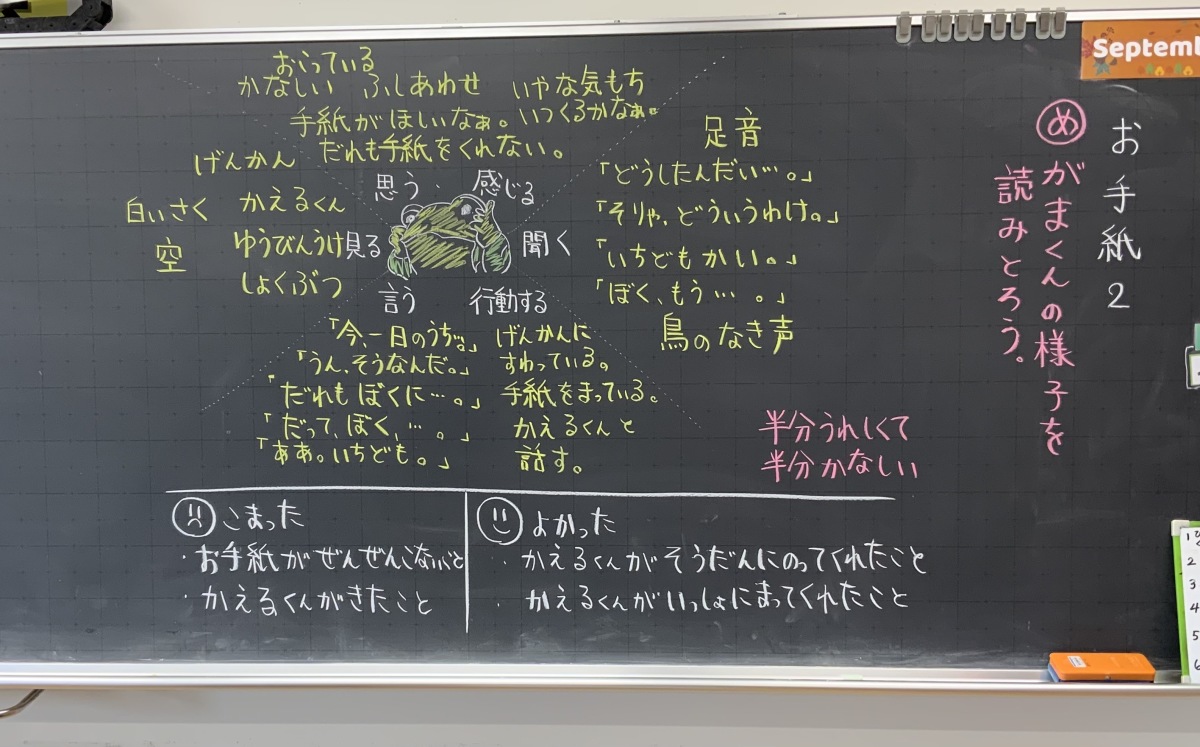 Septemb
お手紙2
めがまくんの様子を
読みとろう。
おこっている
かなしい ふしあわせ いやな気もち
手紙がほしいなぁ。いつくるかなぁ。
だれも手紙をくれない。
思う・感じる
げんかん
白いさく かえるくん
空 ゆうびんうけ
しょくぶつ
見る
足音
「どうしたんだい…。」
「そりゃ、どういうわけ。」
「いちどもかい。」
「ぼく、もう…。」
鳥のなき声
聞く
言う
「今、一日のうち…。」
「うん、そうなんだ。」
「だれもぼくに…。」
「だって、ぼく、…。」
「ああ。いちども。」
行動する
げんかんに
すわっている。
手紙をまっている。
かえるくんと
話す。
半分うれしくて
半分かなしい
こまった
・お手紙がぜんぜんこないこと
・かえるくんがきたこと
よかった
・かえるくんがそうだんにのってくれたこと
・かえるくんがいっしょにまってくれたこと
1
2
3
4
5
6